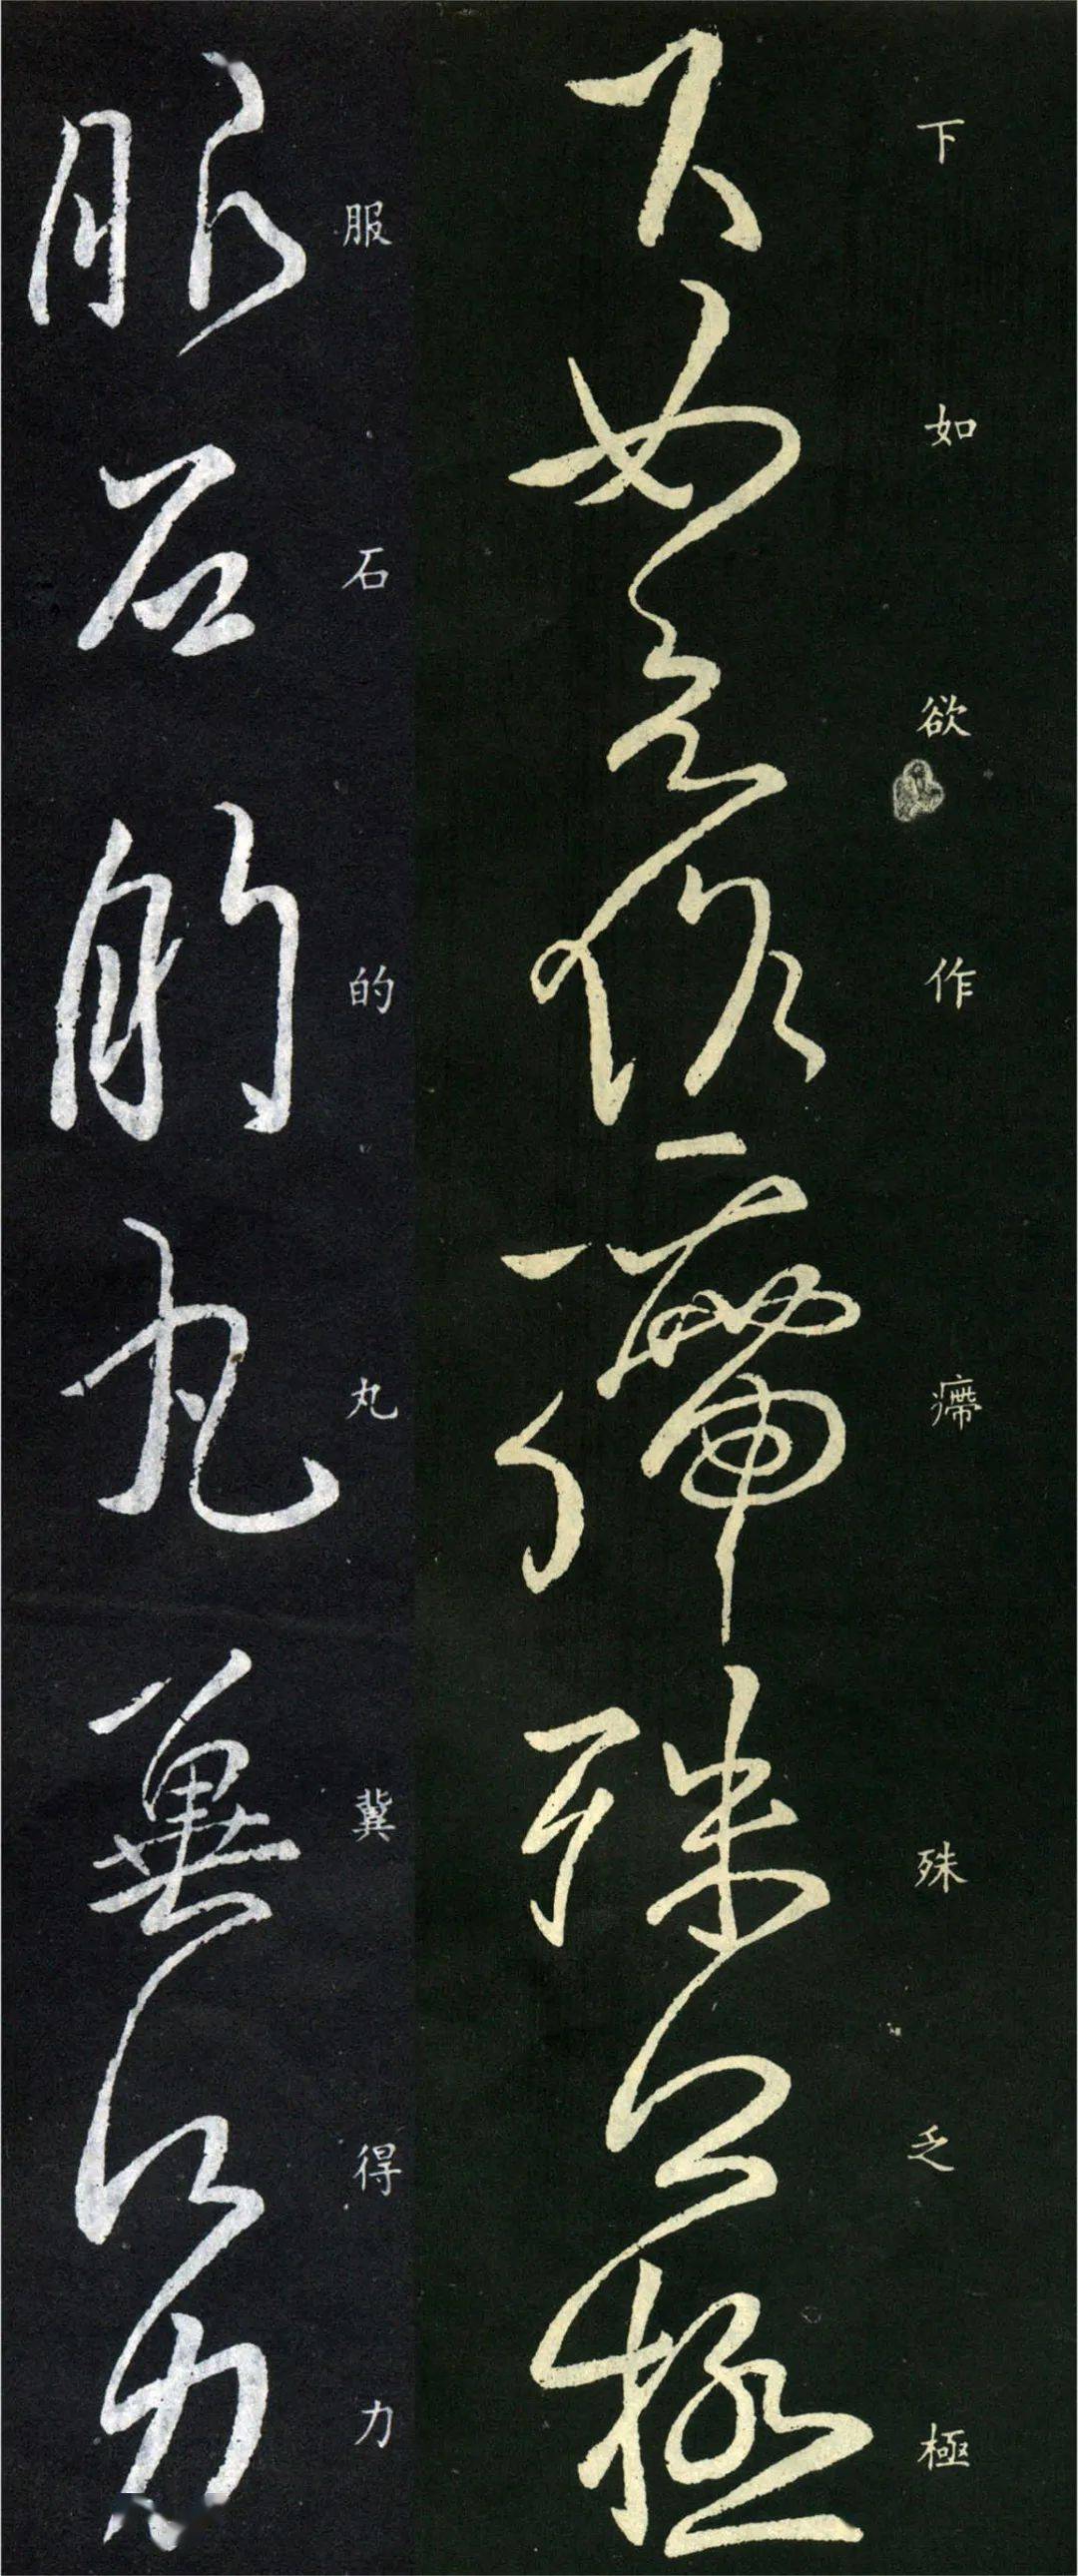 下如欲作㿃殊乏極
服石的丸冀得力